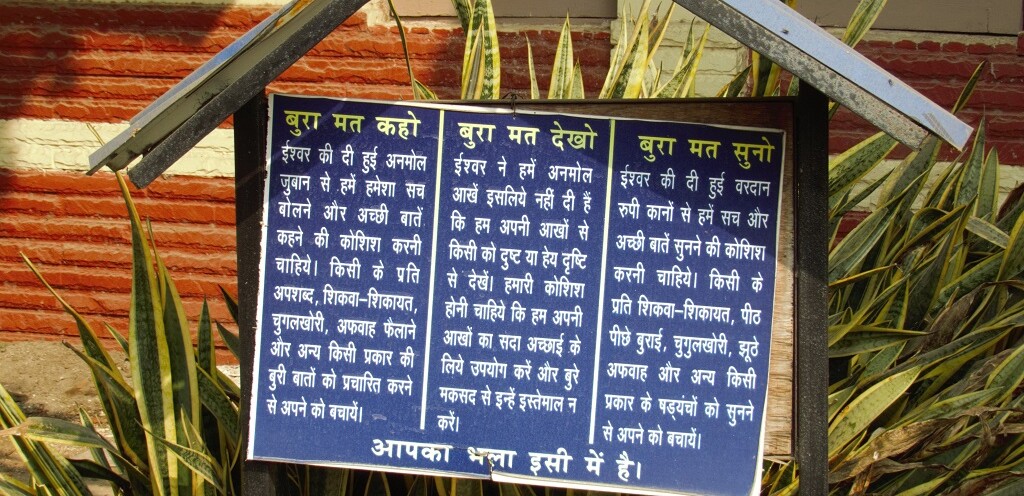 बुरा मत कहो
ईश्वर की दी हुई अनमोल
जुबान से हमें हमेशा सच
बोलने और अच्छी बातें
कहने की कोशिश करनी
चाहिये। किसी के प्रति
अपशब्द, शिकवा–शिकायत,
चुगलखोरी, अफवाह फैलाने
और अन्य किसी प्रकार की
बुरी बातों को प्रचारित करने
से अपने को बचायें।
बुरा मत देखो
ईश्वर ने हमें अनमोल
आखें इसलिये नहीं दी हैं
कि हम अपनी आखों से
किसी को दुष्ट या हेय दृष्टि
से देखें। हमारी कोशिश
होनी चाहिये कि हम अपनी
आखों का सदा अच्छाई के
लिये उपयोग करें और बुरे
मकसद से इन्हें इस्तेमाल न
करें।
बुरा मत सुनो
ईश्वर की दी हुई वरदान
रुपी कानों से हमें सच और
अच्छी बातें सुनने की कोशिश
करनी चाहिये। किसी के
प्रति शिकवा–शिकायत, पीठ
पीछे बुराई, चुगुलखोरी, झूठे
अफवाह और अन्य किसी
प्रकार के षड्यंचों को सुनने
से अपने को बचायें।
आपका भला इसी में है।